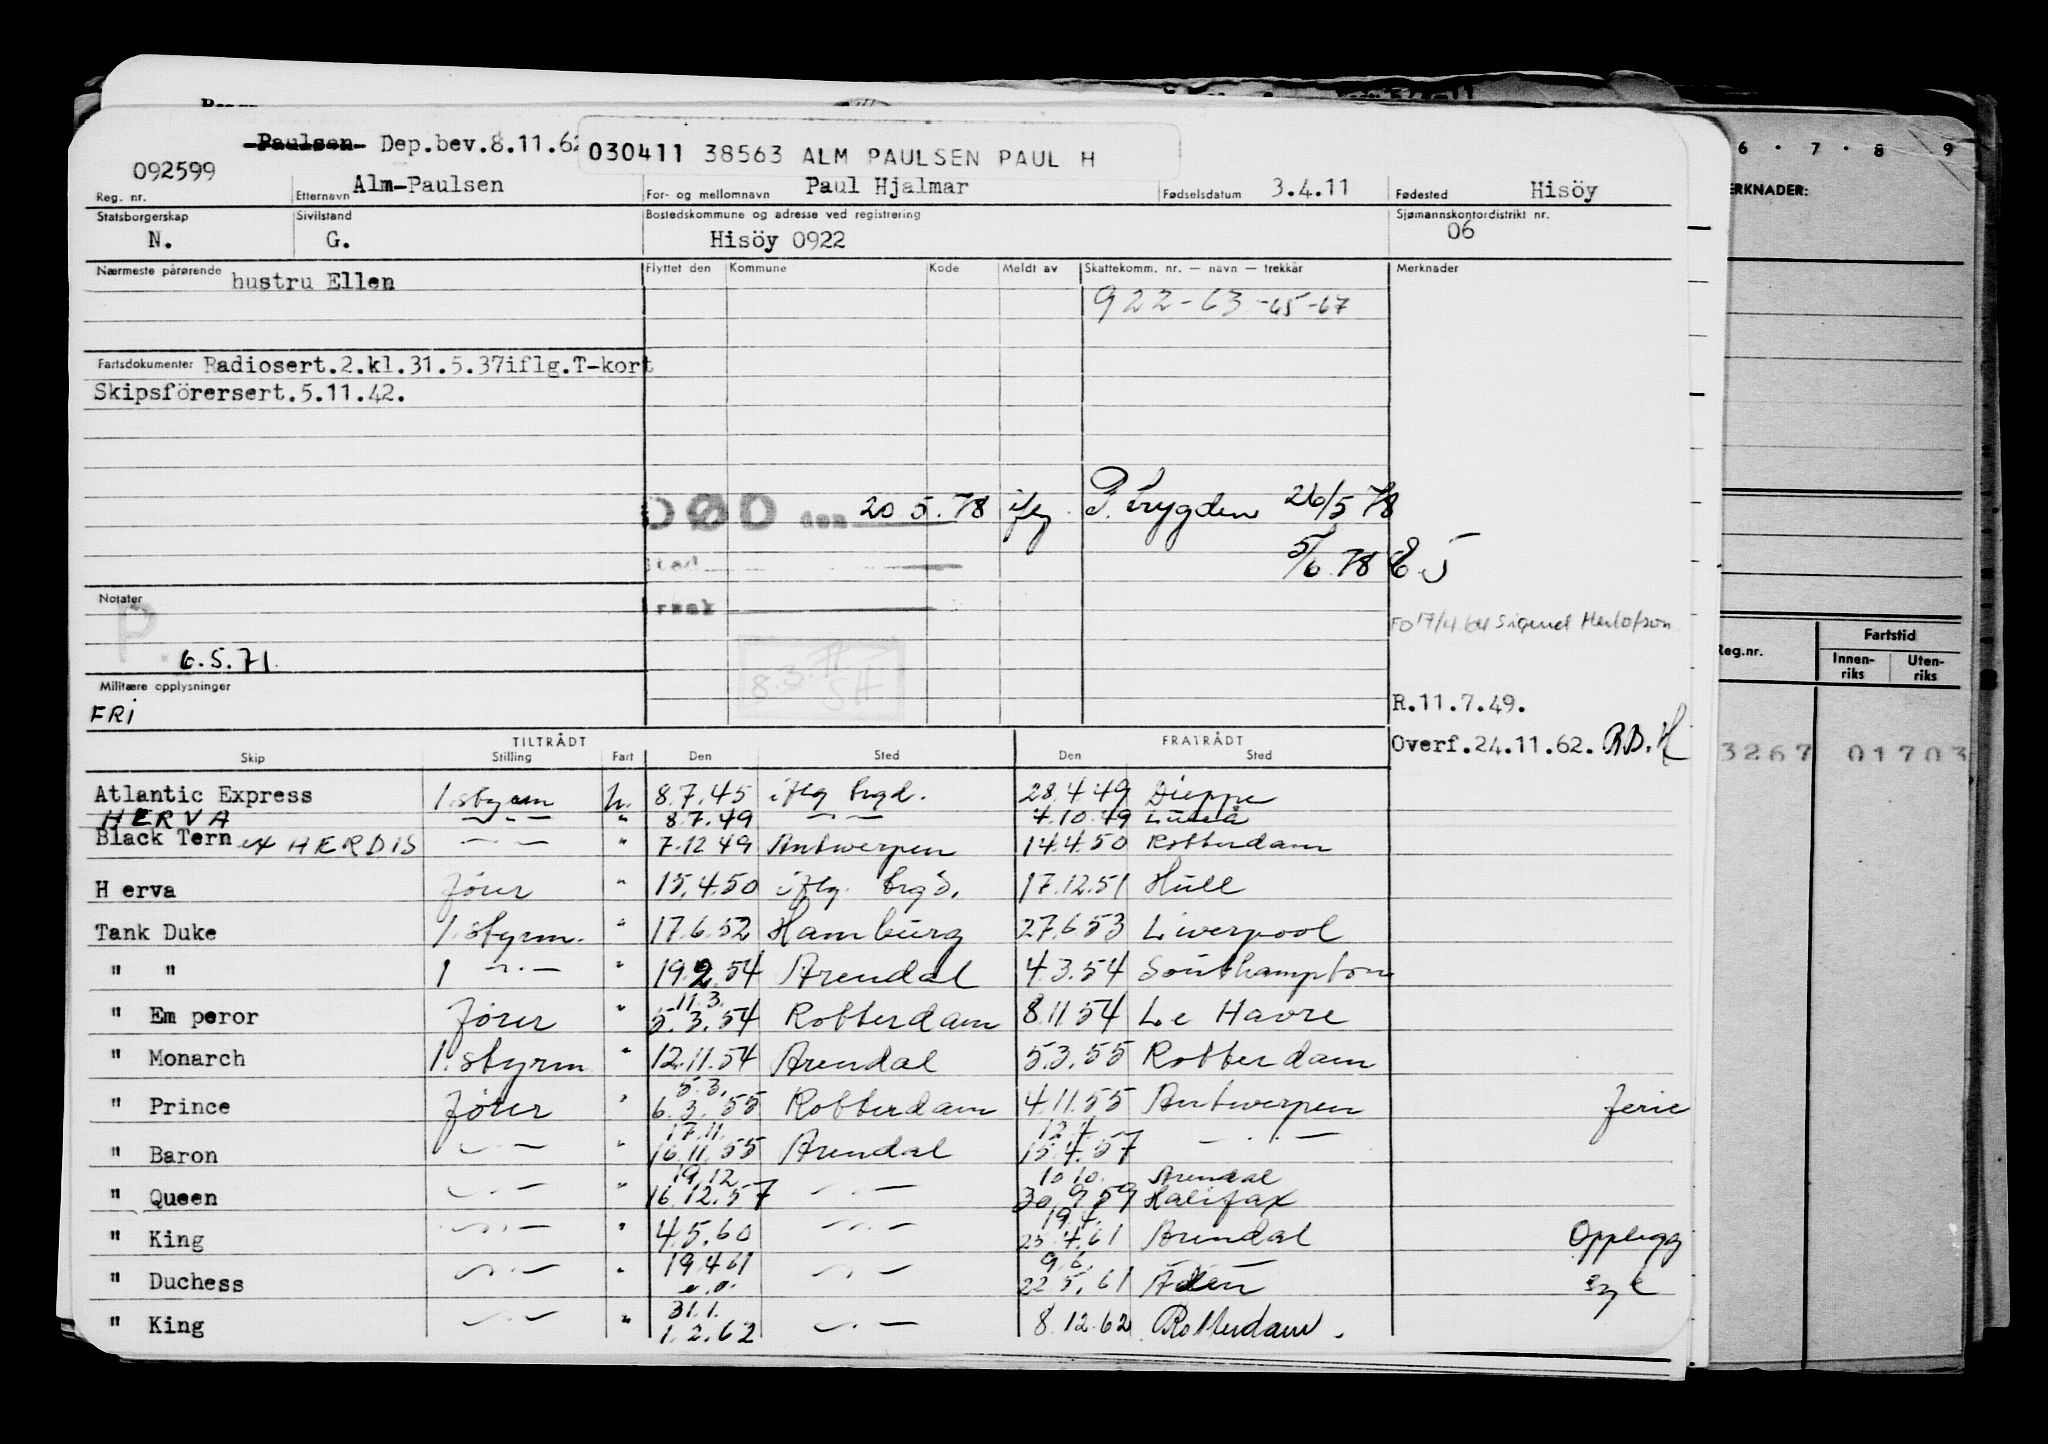 Paulsen Dep.bev.8.11.62
030411 38563 ALM PAULSEN PAUL H
092599 Alm-Paulsen Paul Hjalmar 3.4.11 Hisöy
Reg. nr. Etternavn For- og mellomnavn Fødselsdatum Fødested
Statsborgerskap Sivilstand Bostedskommune og adresse ved registrering Sjømannskontordistrikt nr.
N. G. Hisöy 0922 06
Nærmeste pårørende hustru Ellen Flyttet den Kommune Kode Meldt av Skattekomm. nr. — navn — trekkår Merknader
922-63-65-67
Fartsdokumenter Radiosert.2.kl.31.5.37iflg.T-kort
Skipsförersert.5.11.42.
DØD den 20 5.78 iflg. P.trygden 26/5 78
Sted 5/6 78
Årsak
Notater
P. 6.5.71.
FO 17/4 64 Sigurd Herlofson
8.3.77
Militære opplysninger
FRI
R.11.7.49.
Overf.24.11.62.
TILTRÅDT FRATRÅDT
Skip Stilling Fart Den Sted Den Sted
Atlantic Express 1.styrm u. 8.7.45 iflg brgd. 28.4.49 Dieppe
HERVA — " — " 8.7.49 — " — 4.10.49 Luleå
Black Tern ex HERDIS — " — " 7.12 49 Antwerpen 14.4.50 Rotterdam
H erva fører " 15.4.50 iflg. brgd. 17.12.51 Hull
Tank Duke 1.styrm. " 17.6.52 Hamburg 27.6 53 Liverpool
" " 1 — " — " 19.2.54 Arendal 4.3.54 Southampton
" Em peror fører " 11.3. 5.3.54 Rotterdam 8.11 54 Le Havre
" Monarch 1.styrm " 12.11.54 Arendal 5.3.55 Rotterdam
" Prince fører " 5.3. 6.3.55 Rotterdam 4.11.55 Antwerpen ferie
" Baron — " — " 17.11. 16.11.55 Arendal 12.4 15.4.57 — " —
" Queen — " — " 19.12 16.12.57 — " — 10 10. Arendal 30.9.59 Halifax
" King — " — " 4.5.60 — " — 19.4. 25.4.61 Arendal Opplegg
" Duchess — " — " 19.4 61 — " — 9.6. 22.5.61 Aden syk
" King — " — " 31.1. 1.2.62 — " — 8.12.62 Rotterdam.
6 · 7 · 8 9
ERKNADER:
Reg.nr. Fartstid
Innen-riks Uten-riks
3267 01703